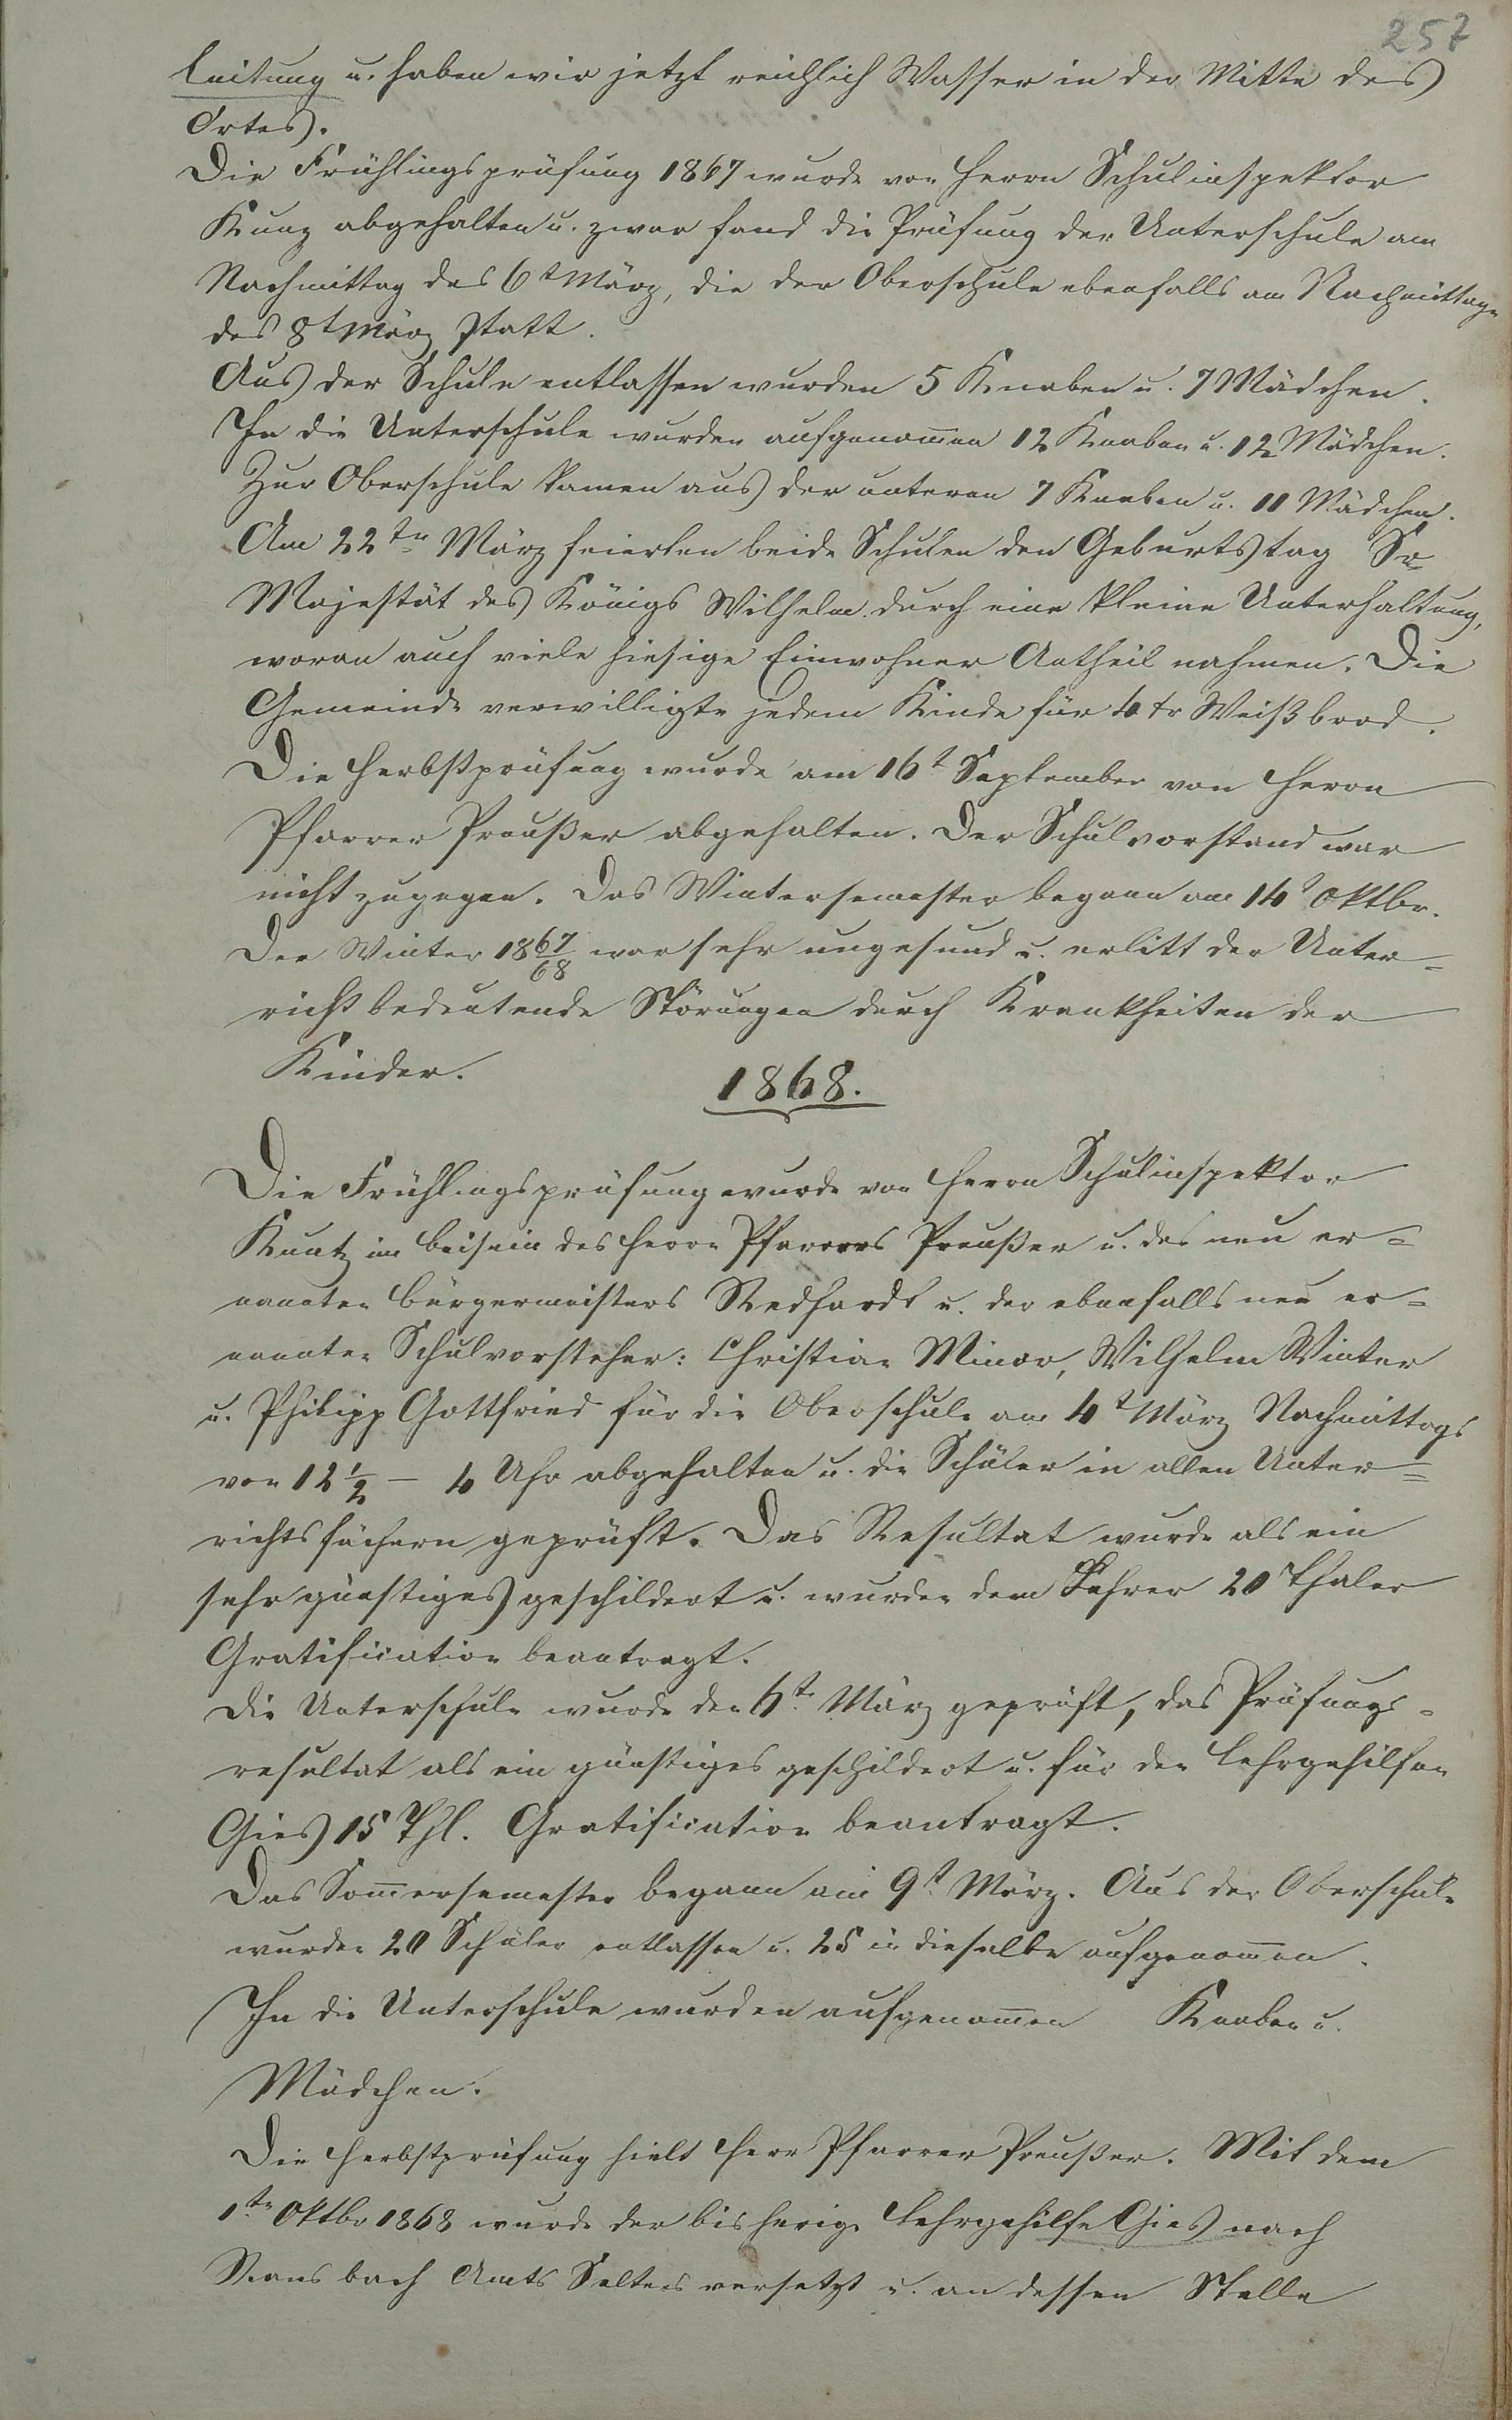 257
leitung u. haben wir jetzt reichlich Wasser in der Mitte des
Ortes.
Die Frühlingsprüfung 1867 wurde von Herrn Schulinspektor
Kunz abgehalten u. zwar fand die Prüfung der Unterschule am
Nachmittag des 6t März, die der Oberschule ebenfalls am Nachmittage
des 8t März statt.
Aus der Schule entlassen wurden 5 Knaben u. 7 Mädchen.
In die Unterschule wurden aufgenom̄en 12 Knaben u. 12 Mädchen.
Zur Oberschule kamen aus der unteren 7 Knaben u. 11 Mädchen.
Am 22ten März feierten beide Schulen den Geburtstag Sr
Majestät des Königs Wilhelm durch eine kleine Unterhaltung,
woran auch viele hiesige Einwohner Antheil nahmen. Die
Gemeinde verwilligte jedem Kinde für 4 xr Weißbrod.
Die Herbstprüfung wurde am 16t September von Herrn
Pfarrer Preußer abgehalten. Der Schulvorstand war
nicht zugegen. Das Wintersemester begann am 14t Oktbr.
Der Winter 1867/68 war sehr ungesund u. erlitt der Unter=
richt bedeutende Störungen durch Krankheiten der
Kinder.
1868.
Die Frühlingsprüfung wurde von Herrn Schulinspektor
Kuntz im Beisein des Herrn Pfarrers Preußer u. des neu er=
nannten Bürgermeisters Redhardt u. der ebenfalls neu er=
nannten Schulvorsteher: Christian Minor, Wilhelm Winter
u. Philipp Gottfried für die Oberschule am 4t März Nachmittags
von 12 1/2 – 4 Uhr abgehalten u. die Schüler in allen Unter=
richtsfächern geprüft. Das Resultat wurde als ein
sehr günstiges geschildert u. wurden dem Lehrer 20 Thaler
Gratification beantragt.
Die Unterschule wurde den 6ten März geprüft, das Prüfungs=
resultat als ein günstiges geschildert u. für den Lehrgehilfen
Gies 15 Thl. Gratification beantragt.
Das Som̄ersemester begann am 9t März. Aus der Oberschule
wurden 20 Schüler entlassen u. 25 in dieselbe aufgenom̄en.
In die Unterschule wurden aufgenom̄en Knaben u.
Mädchen.
Die Herbstprüfung hielt Herr Pfarrer Preußer. Mit dem
1ten Oktbr 1868 wurde der bisherige Lehrgehilfe Gies nach
Ransbach Amts Selters versetzt u. an dessen Stelle